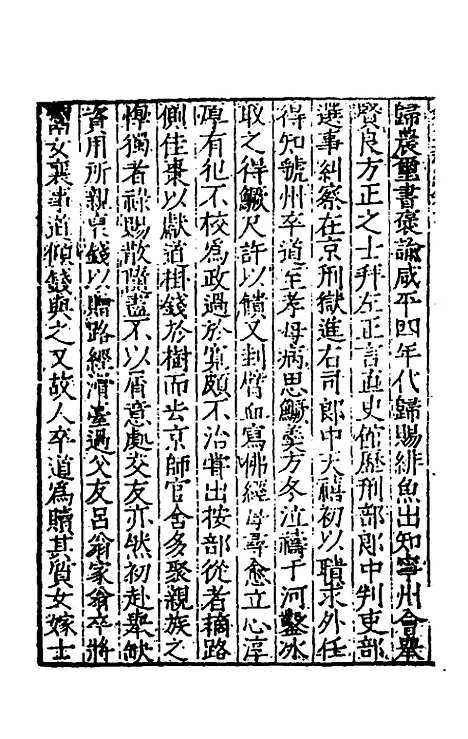 歸農璽書褒諭咸平四年代歸賜緋魚出知寧州會舉
賢良方正之士拜左正言直史館歷刑部郎中判吏部
選事糾察在京刑獄進右司郎中天禧初以聵求外任
得知虢州卒道至孝母病思鱖羹方冬泣禱于河鑿冰
取之得鱖尺許以饋又刲臂血寫佛經母尋愈立心淳
厚有犯不校為政過於寬頗不治嘗出按部從者摘路
側佳棗以獻道相錢於樹而去京師官舍多聚親族之
惸獨者祿賜散隨盡不以屑意處交友亦然初赴舉缺
資用所親裒錢以贐路經滑臺過父友呂翁家翁卒將
鬻女襄事道傾錢與之又故人卒道為贖其質女嫁士